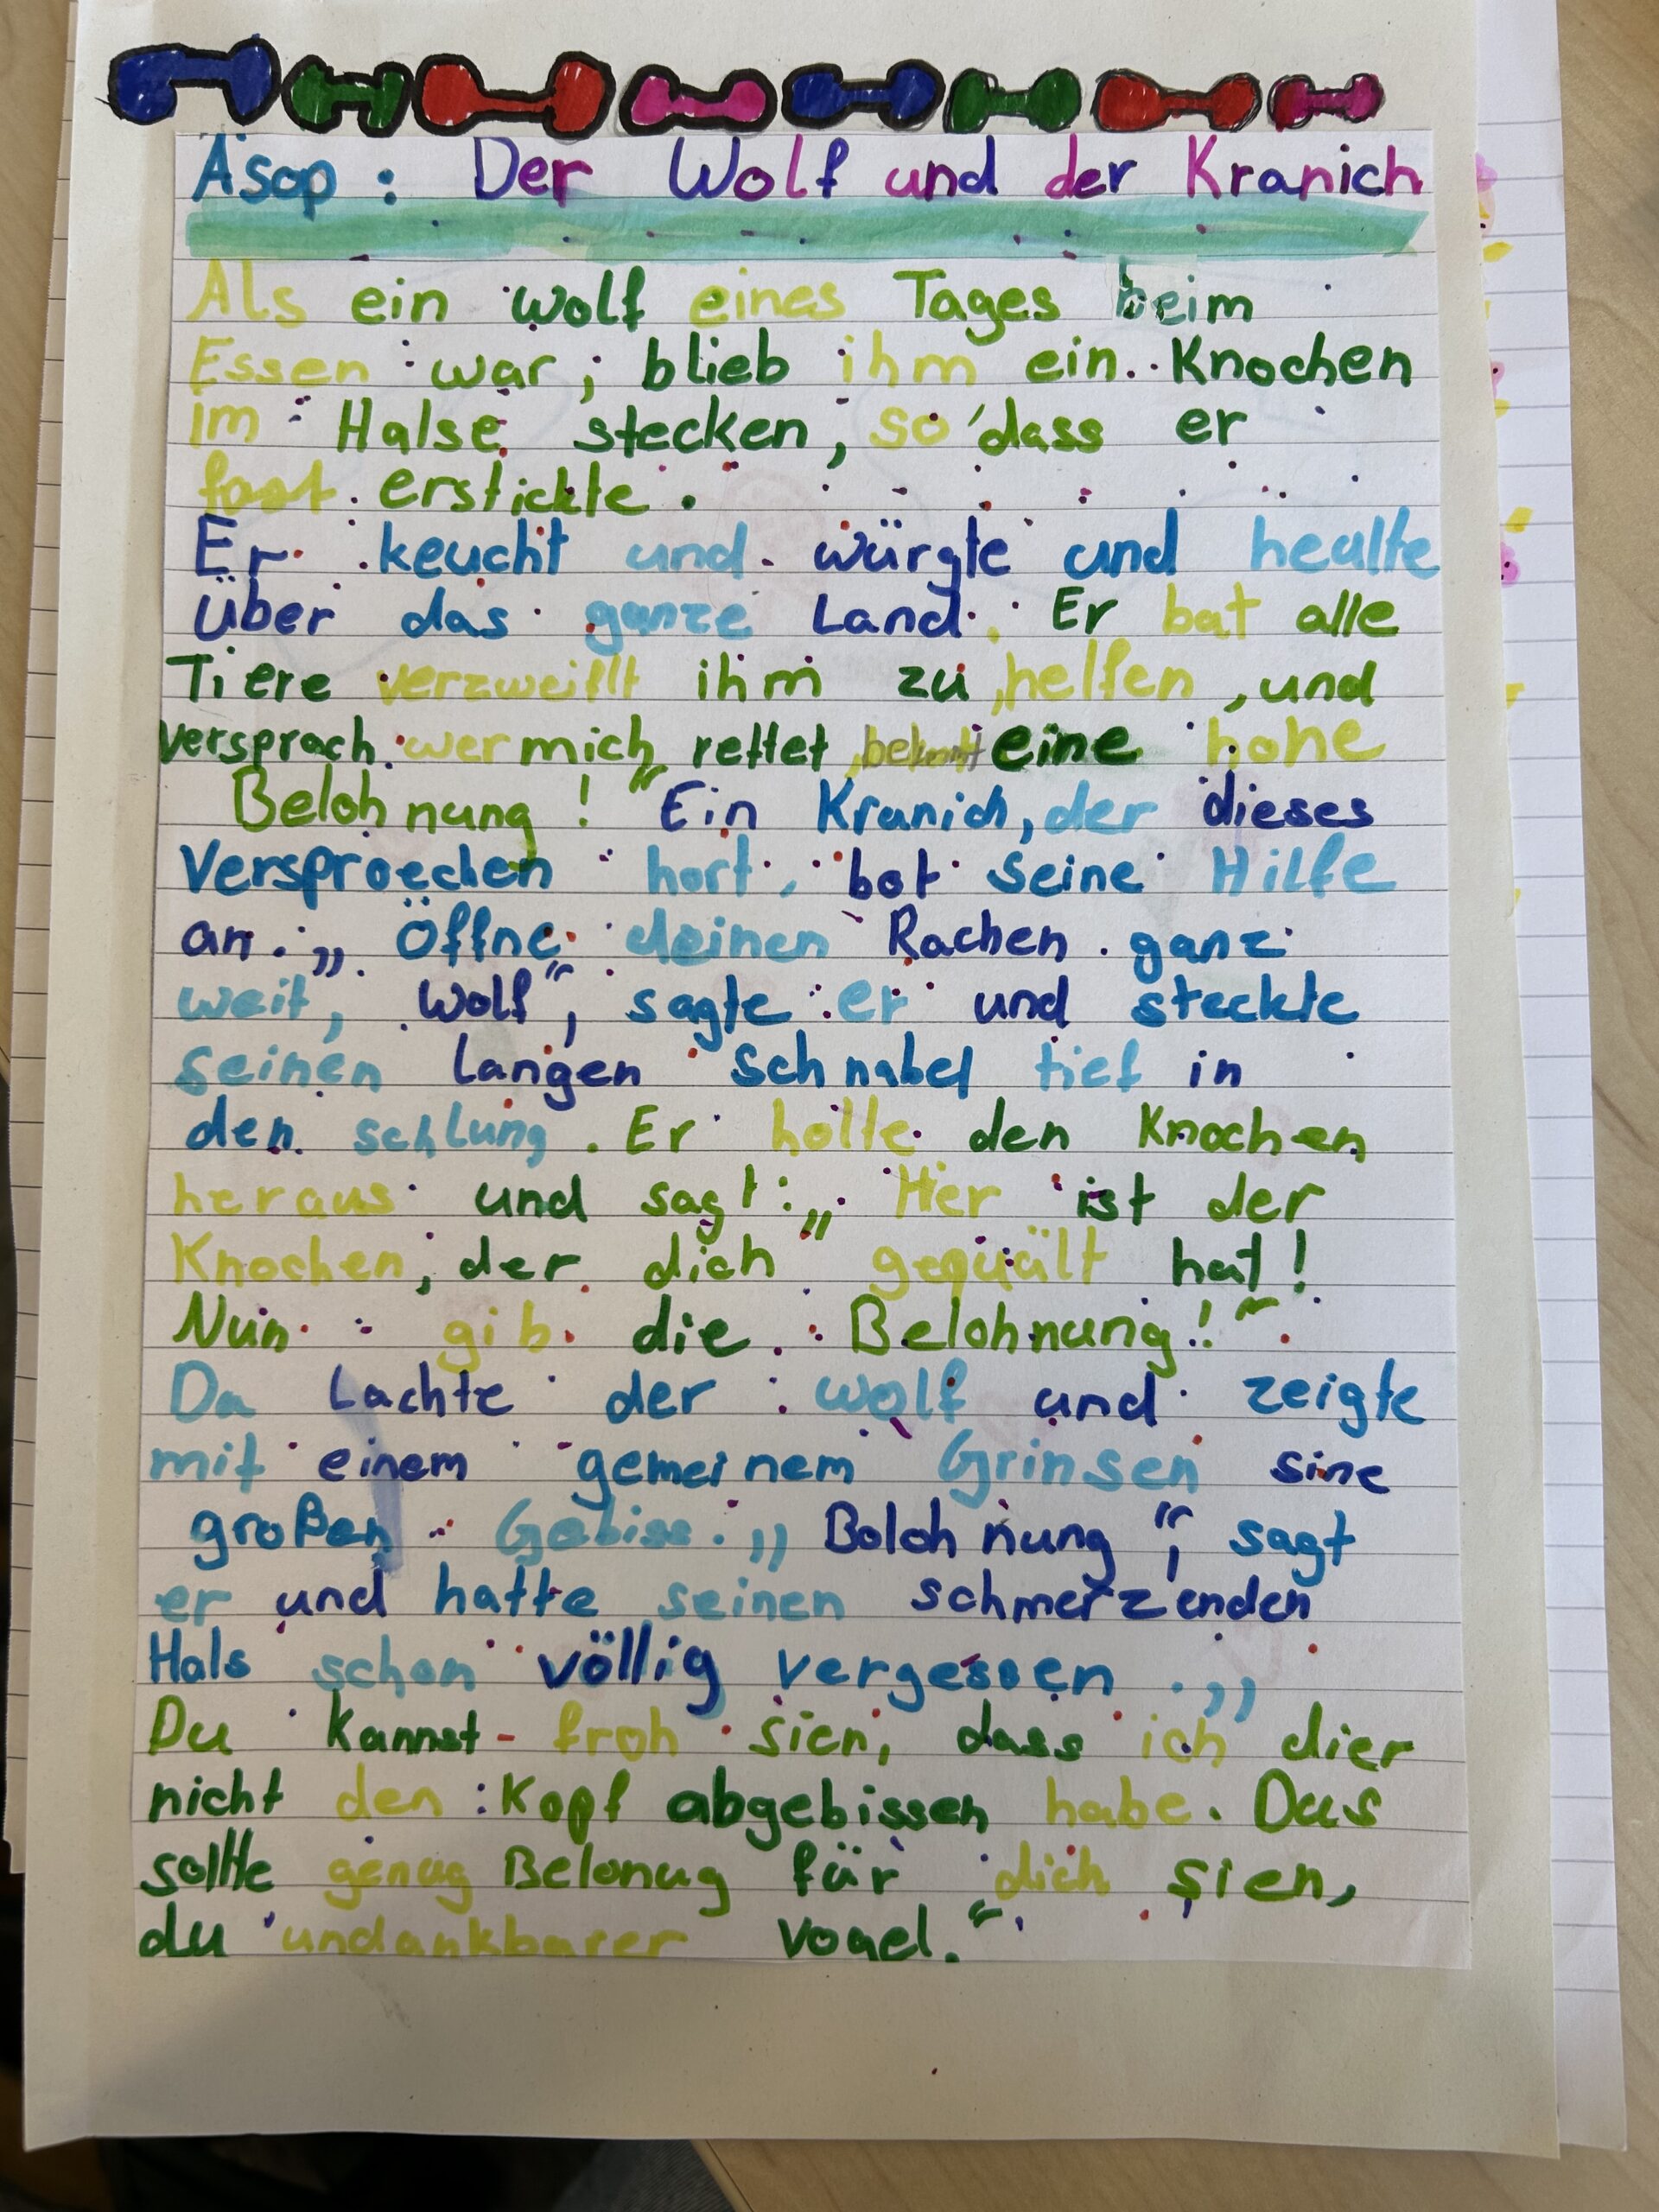 Äsop : Der Wolf und der Kranich
Als ein wolf eines Tages beim
Essen war, blieb ihm ein Knochen
im Halse stecken, so dass er
fast erstickte.
Er keucht und würgte und heulte
über das ganze Land. Er bat alle
Tiere verzweiflt ihm zu helfen, und
versprach. wer mich rettet, bekomt eine hohe
Belohnung!“ Ein Kranich, der dieses
Versproechen hort, bot seine Hilfe
an. „Öffne deinen Rachen ganz
weit, Wolf“, sagte er und steckte
seinen langen schnabel tief in
den schlung. Er holte den Knochen
heraus und sagt: „Her ist der
Knochen, der dich gequält hat!
Nun gib die Belohnung!“
Da Lachte der wolf und zeigte
mit einem gemeinem Grinsen sine
großen Gebiss. „Boloh nung“, sagt
er und hatte seinen schmerzenden
Hals schon völlig vergessen. „
Du kannst froh sien, dass ich dier
nicht den Kopf abgebissen habe. Das
sollte genug Belonug für dich sien,
du undankbarer vogel.“